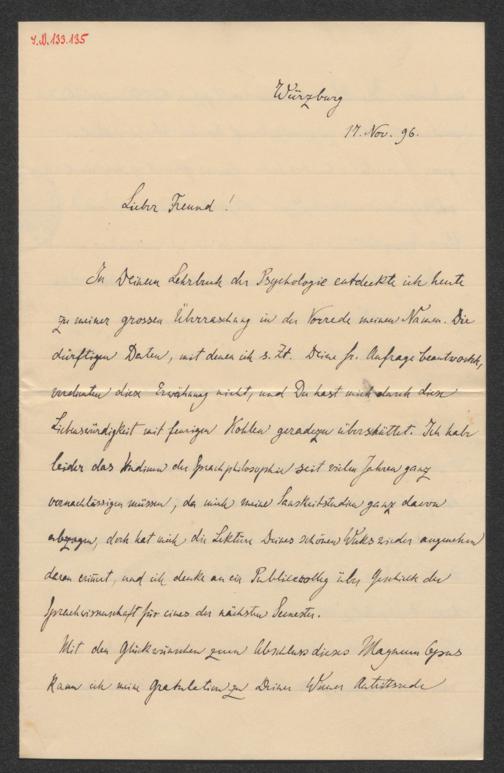 I.N.133.135
Würzburg
17. Nov. 96.
Lieber Freund!
In Deinem Lehrbuch der Psychologie entdeckte ich heute
zu meiner grossen Überraschung in der Vorrede meinen Namen. Die
dürftigen Daten, mit denen ich s. Zt. Deine fr. Anfrage beantwortete,
verdienten diese Erwähnung nicht, und Du hast mich durch diese
Liebenswürdigkeit mit feurigen Kohlen geradezu überschüttet. Ich habe
leider das Studium der Sprachphilosophie seit vielen Jahren ganz
vernachlässigen müssen, da mich meine Sanskritstudien ganz davon
abzogen, doch hat mich die Lektüre Deines schönen Werks wieder angenehm
daran erinnert, und ich denke an ein Publicum über Geschichte der
Sprachwissenschaft für eines der nächsten Semester.
Mit den Glückwünschen zum Abschluss dieses Magnum Opus
kann ich meine Gratulation zu Deiner Wiener Antrittsrede